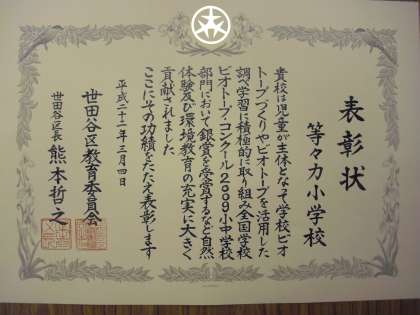 表彰状
等々力小学校
貴校は児童が主体となって学校ビオ
トープづくりやビオトープを活用した
調べ学習に積極的に取り組み全国学校
ビオトープ・コンクール2009小中学校
部門において銀賞を受賞するなど自然
体験及び環境教育の充実に大きく
貢献されました
ここにその功績をたたえ表彰します
平成二十二年三月四日
世田谷区教育委員会
世田谷区長 熊本哲之